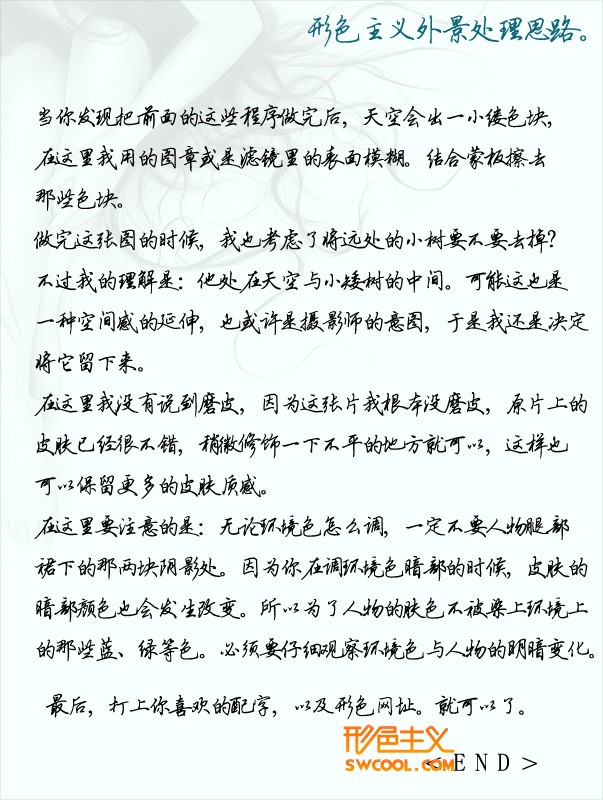 形色主义外景处理思路。
当你发现把前面的这些程序做完后，天空会出一小缕色块，
在这里我用的图章或是滤镜里的表面模糊。结合蒙板擦去
那些色块。
做完这张图的时候，我也考虑了将远处的小树要不要去掉？
不过我的理解是：他处在天空与小矮树的中间。可能这也是
一种空间感的延伸，也或许是摄影师的意图，于是我还是决定
将它留下来。
在这里我没有说到磨皮，因为这张片我根本没磨皮，原片上的
皮肤已经很不错，稍微修饰一下不平的地方就可以，这样也
可以保留更多的皮肤质感。
在这里要注意的是：无论环境色怎么调，一定不要人物腿部
裙下的那两块阴影处。因为你在调环境色暗部的时候，皮肤的
暗部颜色也会发生改变。所以为了人物的肤色不被染上环境上
的那些蓝、绿等色。必须要仔细观察环境色与人物的明暗变化。
最后，打上你喜欢的配字，以及形色网址。就可以了。
形色主义
SWCOOL.COM
< E N D >